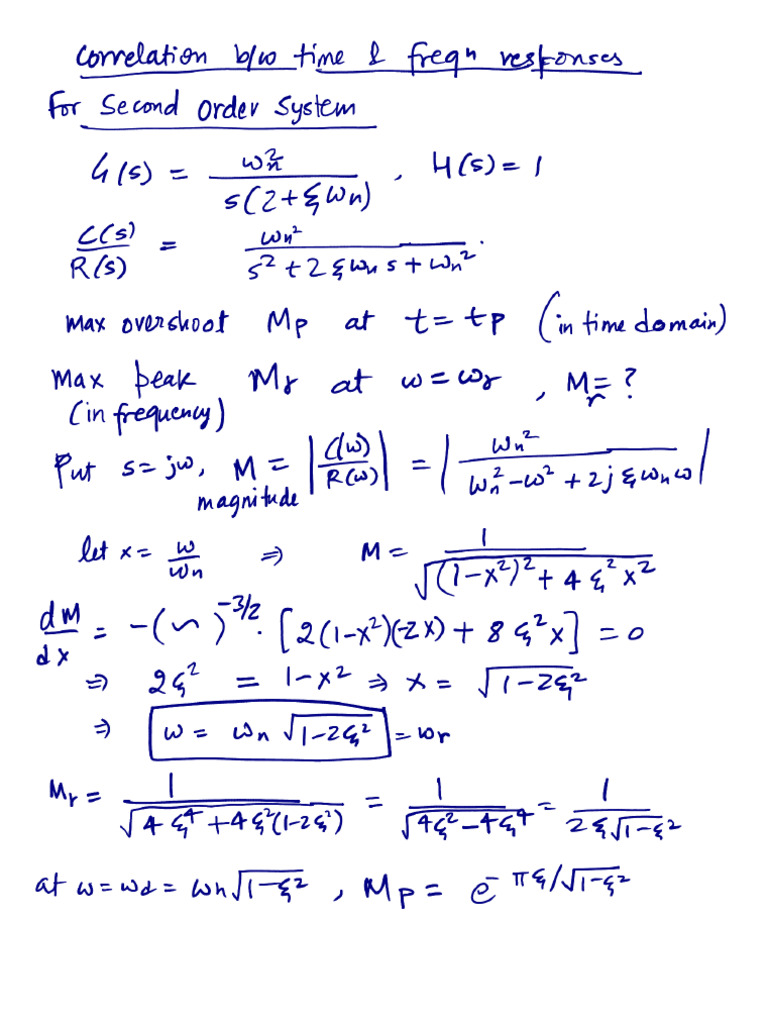 Correlation b/w time & freqn responses
For Second Order System
G(s) = ωn² / s(2+ξωn) , H(s) = 1
C(s)/R(s) = ωn² / s² + 2ξωn s + ωn² .
max overshoot Mp at t = tp (in time domain)
Max peak Mr at ω = ωr , Mr = ?
(in frequency)
Put s = jω, M = |C(ω)/R(ω)| = |ωn² / ωn² - ω² + 2jξωnω|
magnitude
let x = ω/ωn ⇒ M = 1/√((1-x²)² + 4ξ²x²)
dM/dx = -(~)^-3/2 . [2(1-x²)(-2x) + 8ξ²x] = 0
⇒ 2ξ² = 1-x² ⇒ x = √(1-2ξ²)
⇒ ω = ωn √(1-2ξ²) = ωr
Mr = 1/√(4ξ⁴ + 4ξ²(1-2ξ²)) = 1/√(4ξ² - 4ξ⁴) = 1/2ξ√(1-ξ²)
at ω = ωd = ωn√(1-ξ²) , Mp = e^-πξ/√(1-ξ²)